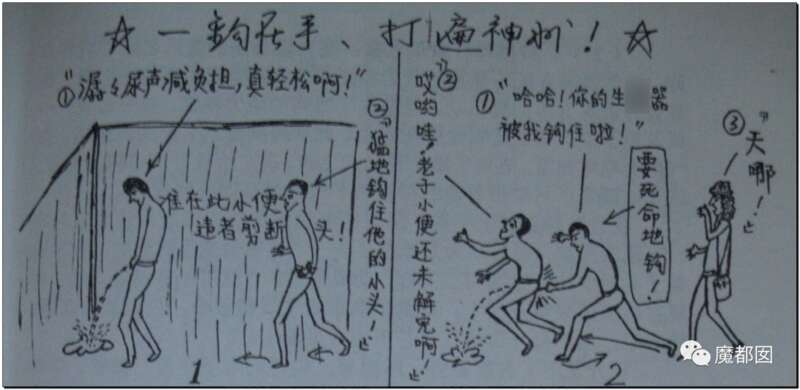 ☆一鈎在手、打遍神州！☆
①"潺々尿声减负担，真轻松啊！"
②"猛地鈎住他的小头！"
谁在此小便
违者剪断 头！
1
②"哎哟哇！老子小便还未解完啊！"
①"哈哈！你的生 器
被我鈎住啦！"
要死命地鈎！
③"天哪！"
2
魔都囡